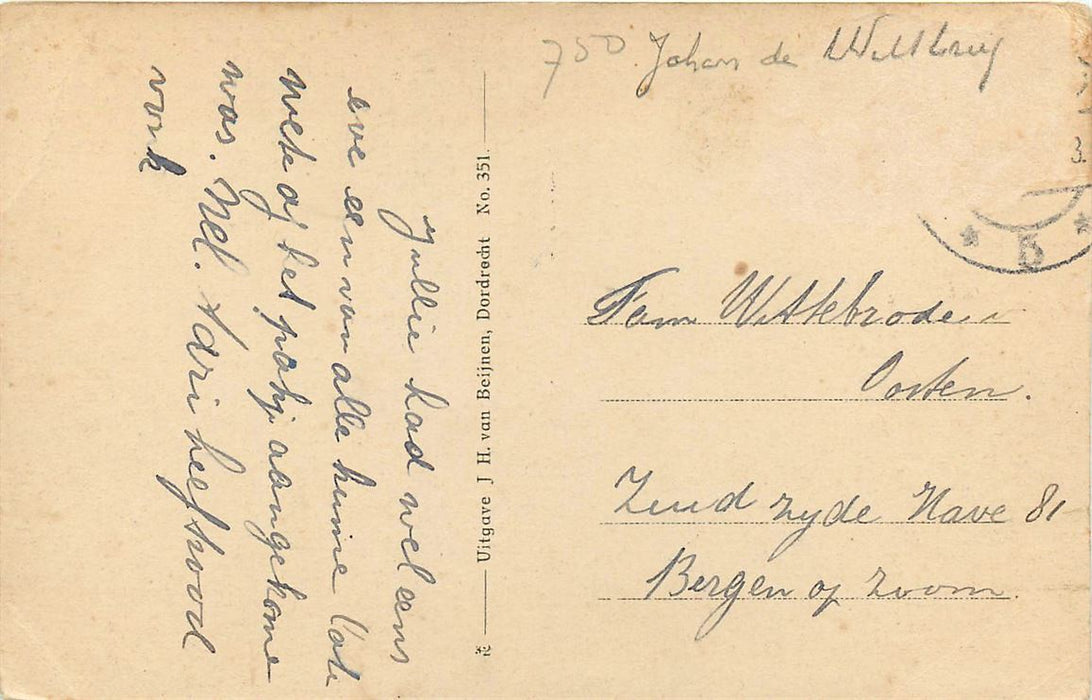 750 Johan de
Jullie had wel eens
eve een van alle kunne late
wete of het pakje aangekome
was. Nel. Adri heeft rood
vonk
Uitgave J H. van Beijnen, Dordrecht No. 351.
Fam Wittebrode
Oosten.
Zuid zyde Have 81
Bergen op Zoom